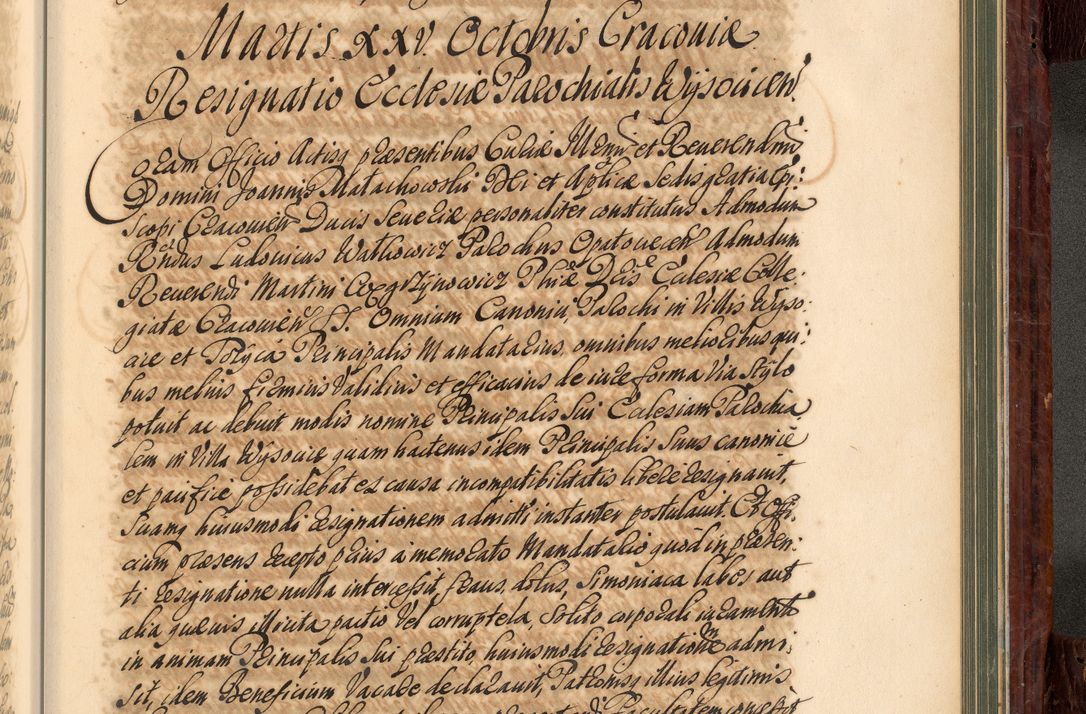 Martis XXV. Octobris Cracoviæ
Resignatio Ecclesiæ Parochialis Wysocicen̄
Coram Officio Actisq præsentibus Curiæ Illmi et Reverendmi
Domini Joannis Małachowski Dei et Aplicæ Sedis gratia Epi:
scopi Cracovien̄ Ducis Severiæ personaliter constitutus Admodum
Rndus Ludovicus Watkowicz Parochus Opatoviecen̄ Admodum
Reverendi Martini Węgrzynowicz Phiæ Dris Ecclesiæ Colle:
giatæ Cracovien̄ S. Omnium Canonici, Parochi in Villis Wyso:
cice et Poryca Principalis Mandatarius, omnibus melioribus qui:
bus melius firmius Validius et efficacius de iure forma Via Stylo
potuit ac debuit modis nomine Principalis Sui Ecclesiam Parochia
lem in Villa Wysocice quam hactenus idem Principalis Suus canonicè
et pacificè possidebat ex causa incompatibilitatis liberè resignavit,
Suamq huiusmodi resignationem admitti instanter postulavit. Et Offi:
cium præsens recepto prius à memorato Mandatario quòd in præsen:
ti resignatione nulla intercessit, fraus, dolus, Simoniaca labes aut
alia quævis illicita pactio Vel corruptela, Solito corporali iuramento
in animam Principalis Sui præstito, huiusmodi resignationem admi:
sit, idem Beneficium Vacare declaravit, Patronisq illius legitimis